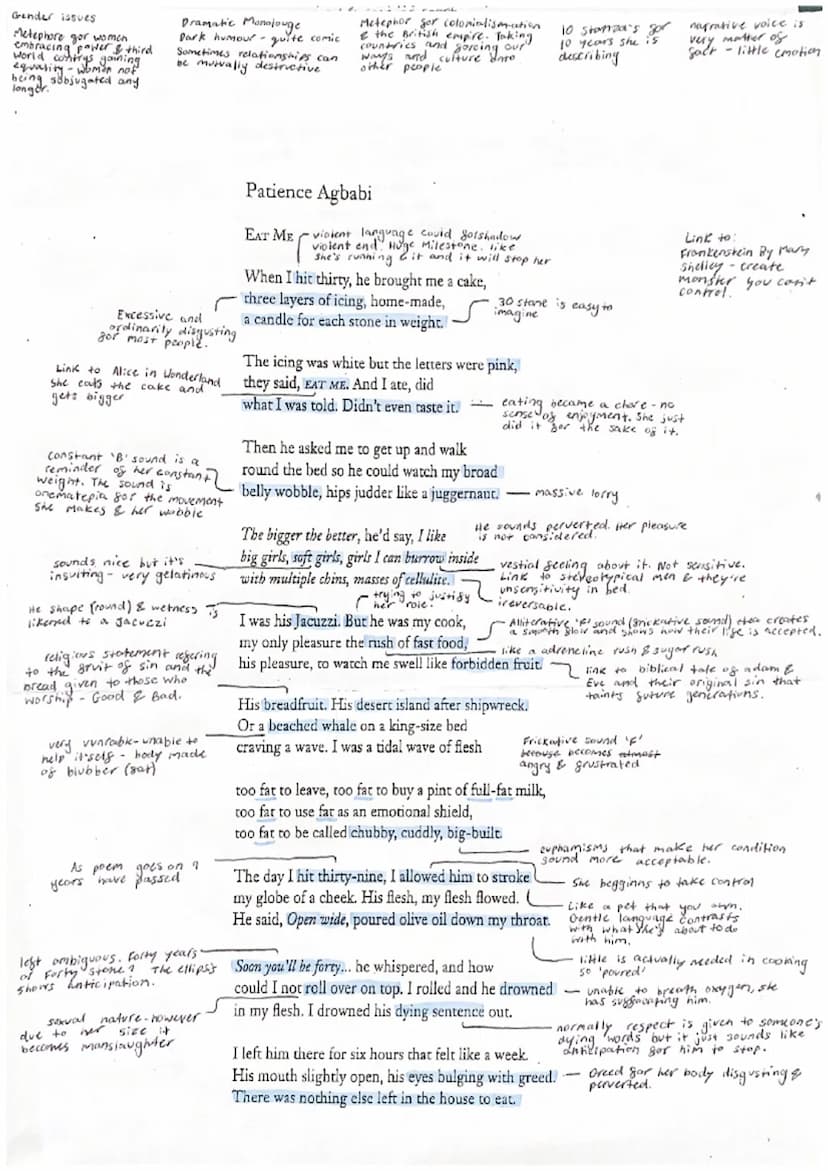 Gender issues
Metephore for women
embracing power & third
world contrys gaining
equality - women not
being subjugated any
longer.
Dramatic Monolouge
Dark humour - quite comic
Sometimes relationships can
be mutually destructive
Metephor for colonialism
& the British empire. Taking
countries and forcing our
ways and culture onto
other people
10 stanza's for
10 years she is
describing
narrative voice is
very matter of
fact - little emotion
Patience Agbabi
EAT ME
violent language could forshadow
violent end. Huge Milestone. like
she's running & it and it will stop her
Link to:
Frankenstein By Mary
Shelley - create
monster you can't
control.
When I hit thirty, he brought me a cake,
three layers of icing, home-made,
a candle for each stone in weight.
30 stone is easy to
imagine
Excessive and
ordinarily disgusting
for most people.
The icing was white but the letters were pink,
they said, EAT ME. And I ate, did
what I was told. Didn't even taste it.
Link to Alice in Wonderland
she eats the cake and
gets bigger
eating became a chore - no
sense of enjoyment. She just
did it for the sake of it.
Then he asked me to get up and walk
round the bed so he could watch my broad
belly wobble, hips judder like a juggernaut.
massive lorry
constant 'B' sound is a
reminder of her constant
weight. The sound is
onematepia for the movement
she makes & her wobble
The bigger the better, he'd say, I like
big girls, soft girls, girls I can burrow inside
with multiple chins, masses of cellulite.
He sounds perverted. Her pleasure
is not considered.
sounds nice but it's
insulting - very gelatinous
vestial feeling about it. Not sensitive.
Link to stereotypical men & they're
unsensitivity in bed.
irreversable.
trying to justify
her role.
I was his Jacuzzi. But he was my cook,
my only pleasure the rush of fast food,
his pleasure, to watch me swell like forbidden fruit.
He shape (round) & wetness is
likened to a Jacuzzi
Alliterative 'F' sound (frickative sound) creates
a smooth and shows how their life is accepted.
like a adreneline rush & sugar rush
link to biblical tale of adam &
Eve and their original sin that
taints future generations.
religious statement refering
to the fruit of sin and the
bread given to those who
worship - Good & Bad.
His breadfruit. His desert island after shipwreck.
Or a beached whale on a king-size bed
craving a wave. I was a tidal wave of flesh
very vunrable - unable to
help itself - body made
of blubber (fat)
Frickative sound 'F'
becomes almost
angry & frustrated
too fat to leave, too fat to buy a pint of full-fat milk,
too fat to use fat as an emotional shield,
too fat to be called chubby, cuddly, big-built.
euphamisms that make her condition
sound more acceptable.
As poem goes on 9
years have passed
The day I hit thirty-nine, I allowed him to stroke
my globe of a cheek. His flesh, my flesh flowed.
He said, Open wide, poured olive oil down my throat.
She begginns to take control
Like a pet that you own.
Gentle language contrasts
with what she's about to do
with him.
little is actually needed in cooking
so 'poured'
left ambiguous. Forty years
or Forty stone? The ellipsis
shows anticipation.
Soon you'll be forty... he whispered, and how
could I not roll over on top. I rolled and he drowned
in my flesh. I drowned his dying sentence out.
unable to breath oxygen, she
has suffocating him.
sexual nature - however
due to her size it
becomes manslaughter
normally respect is given to someone's
dying words but it just sounds like
anticipation for him to stop.
I left him there for six hours that felt like a week.
His mouth slightly open, his eyes bulging with greed.
There was nothing else left in the house to eat.
Greed for her body disgusting &
perverted.